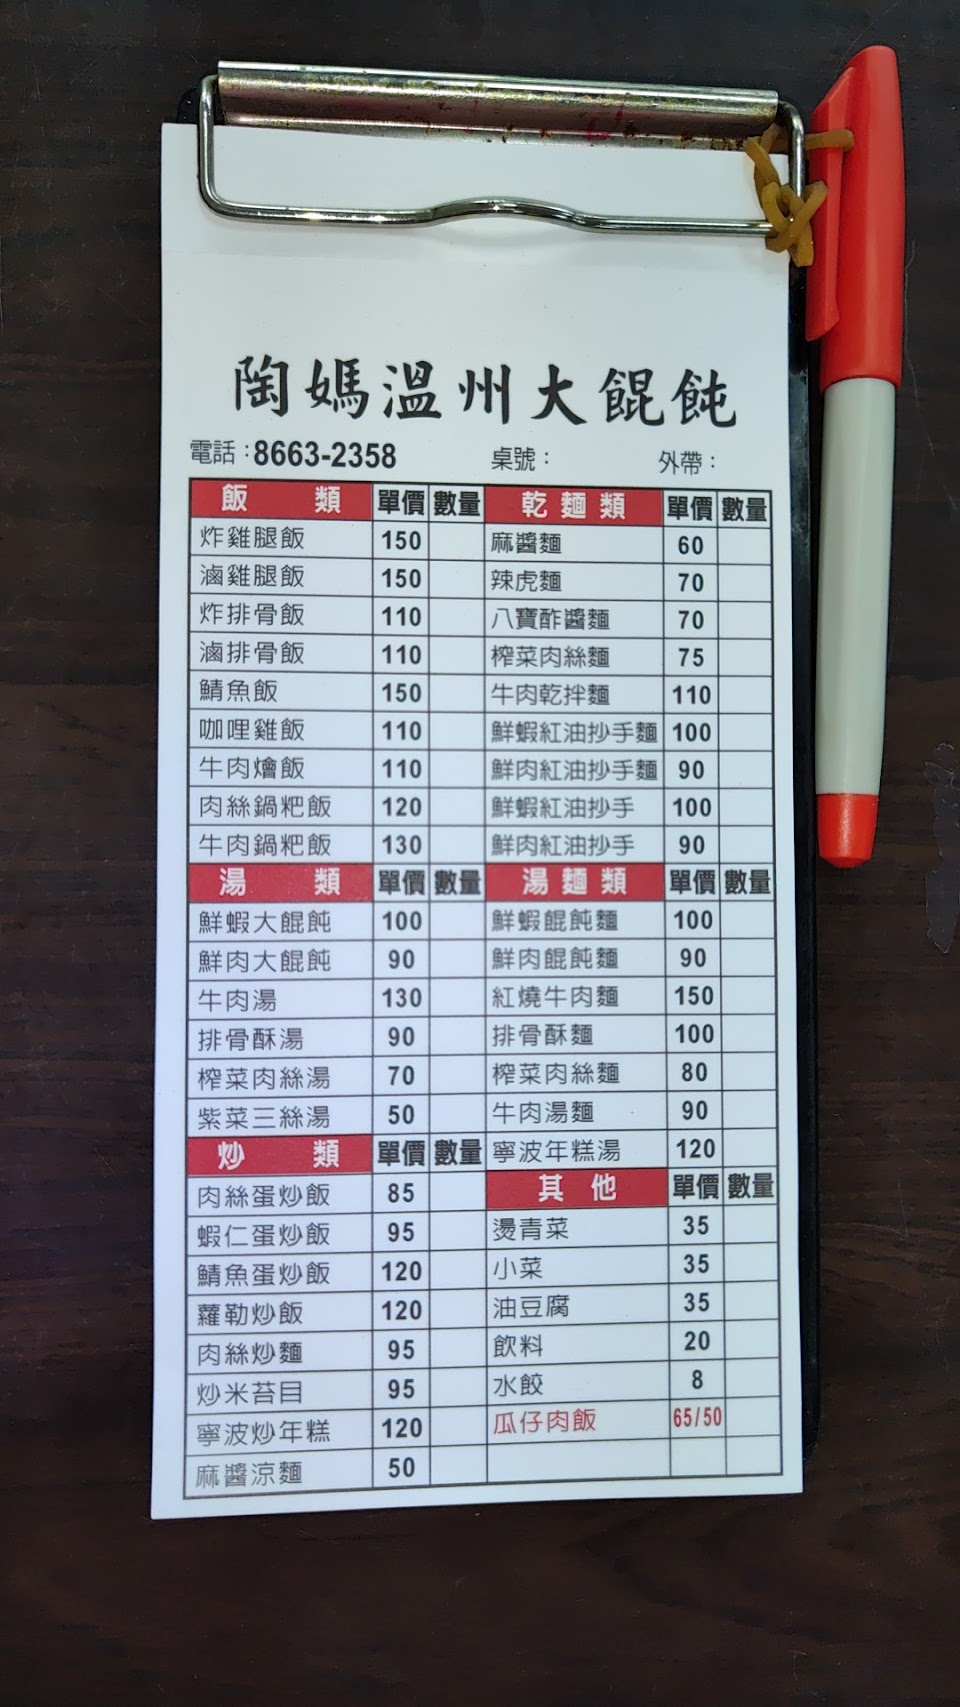 陶媽溫州大餛飩
電話：8663-2358 桌號： 外帶：
飯 類 單價 數量 乾麵類 單價 數量
炸雞腿飯 150 麻醬麵 60
滷雞腿飯 150 辣虎麵 70
炸排骨飯 110 八寶酢醬麵 70
滷排骨飯 110 榨菜肉絲麵 75
鯖魚飯 150 牛肉乾拌麵 110
咖哩雞飯 110 鮮蝦紅油抄手麵 100
牛肉燴飯 110 鮮肉紅油抄手麵 90
肉絲鍋粑飯 120 鮮蝦紅油抄手 100
牛肉鍋粑飯 130 鮮肉紅油抄手 90
湯 類 單價 數量 湯麵類 單價 數量
鮮蝦大餛飩 100 鮮蝦餛飩麵 100
鮮肉大餛飩 90 鮮肉餛飩麵 90
牛肉湯 130 紅燒牛肉麵 150
排骨酥湯 90 排骨酥麵 100
榨菜肉絲湯 70 榨菜肉絲麵 80
紫菜三絲湯 50 牛肉湯麵 90
炒 類 單價 數量 寧波年糕湯 120
肉絲蛋炒飯 85 其 他 單價 數量
蝦仁蛋炒飯 95 燙青菜 35
鯖魚蛋炒飯 120 小菜 35
蘿勒炒飯 120 油豆腐 35
肉絲炒麵 95 飲料 20
炒米苔目 95 水餃 8
寧波炒年糕 120 瓜仔肉飯 65/50
麻醬涼麵 50